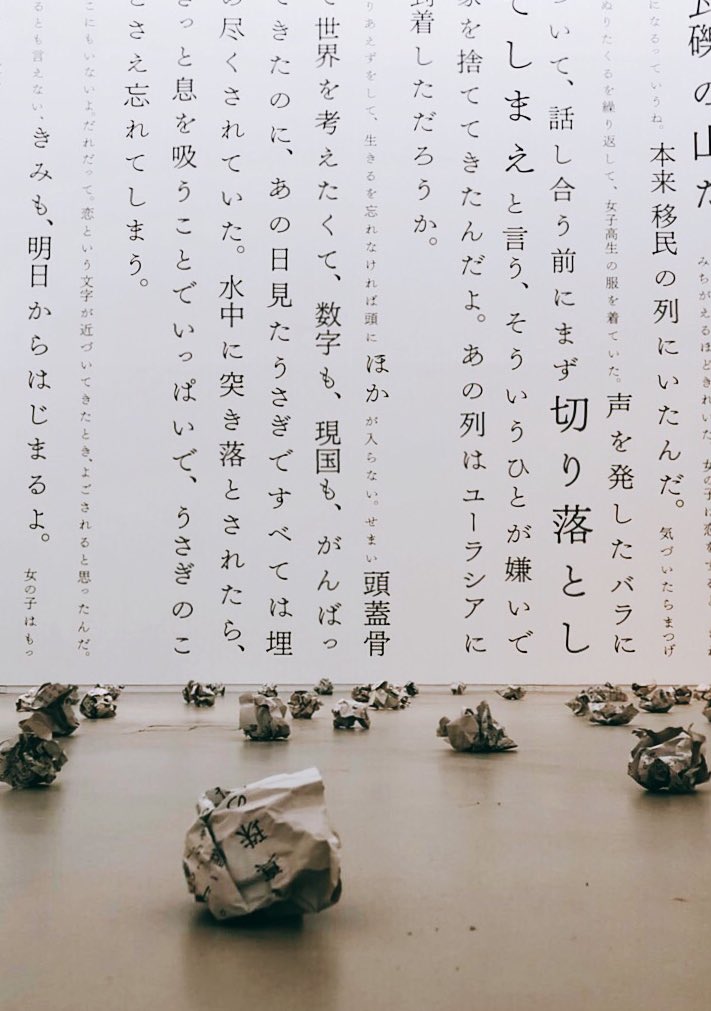 礫の山だ
みちがえるほどきれいだ、女の子は恋をする
になるっていうね。本来移民の列にいたんだ。気づいたらまつげ
ぬりたくるを繰り返して、女子高生の服を着ていた。声を発したバラに
ついて、話し合う前にまず切り落とし
てしまえと言う、そういうひとが嫌いで
家を捨ててきたんだよ。あの列はユーラシアに
到着しただろうか。
りあえずをして、生きるを忘れなければ頭にほかが入らない。せまい頭蓋骨
で世界を考えたくて、数字も、現国も、がんばっ
てきたのに、あの日見たうさぎですべては埋
め尽くされていた。水中に突き落とされたら、
きっと息を吸うことでいっぱいで、うさぎのこ
とさえ忘れてしまう。
こにもいないよ。だれだって。恋という文字が近づいてきたとき、よごされると思ったんだ。
るとも言えない、きみも、明日からはじまるよ。女の子はもっ
の
珠
真